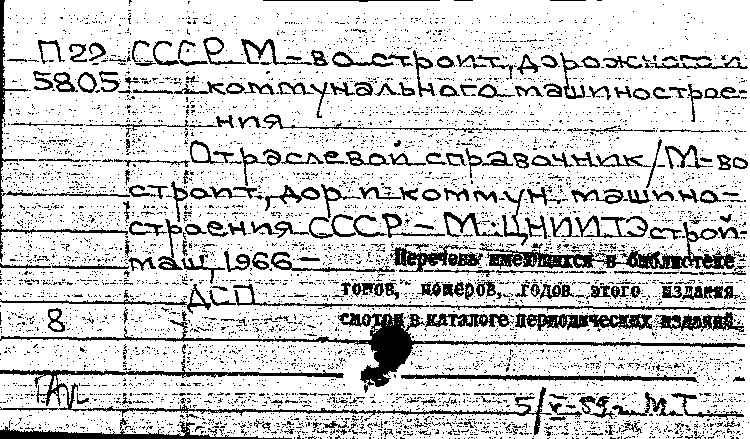 П22 СССР М-во строит., дорожного и
5805 коммунального машинострое-
ния
Отраслевой справочник/М-во
строит., дор. и коммун. машино-
строения СССР.-М.:ЦНИИТЭстрой-
маш, 1966-
Перечень имеющихся в библиотеке
ДСП томов, номеров, годов этого издания
8 смотри в каталоге периодических изданий
5/V-89г. М.Т.